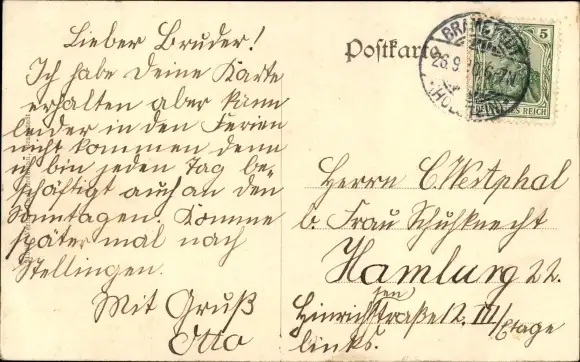 Lieber Bruder!
Ich habe Deine Karte
erhalten aber kann
leider in den Ferien
nicht kommen denn
ich bin jeden Tag be-
schäftigt auch an den
Sonntagen. Komme
später mal nach
Stellingen.
Mit Gruß
Otto
Postkarte
BRAMSTEDT
26.9.
(HOLSTEIN)
5
REICH
Herrn C. Westphal
b. Frau Schuhknecht
Hamburg 22.
Hinrichsenstraße 12 III/Etage
links.